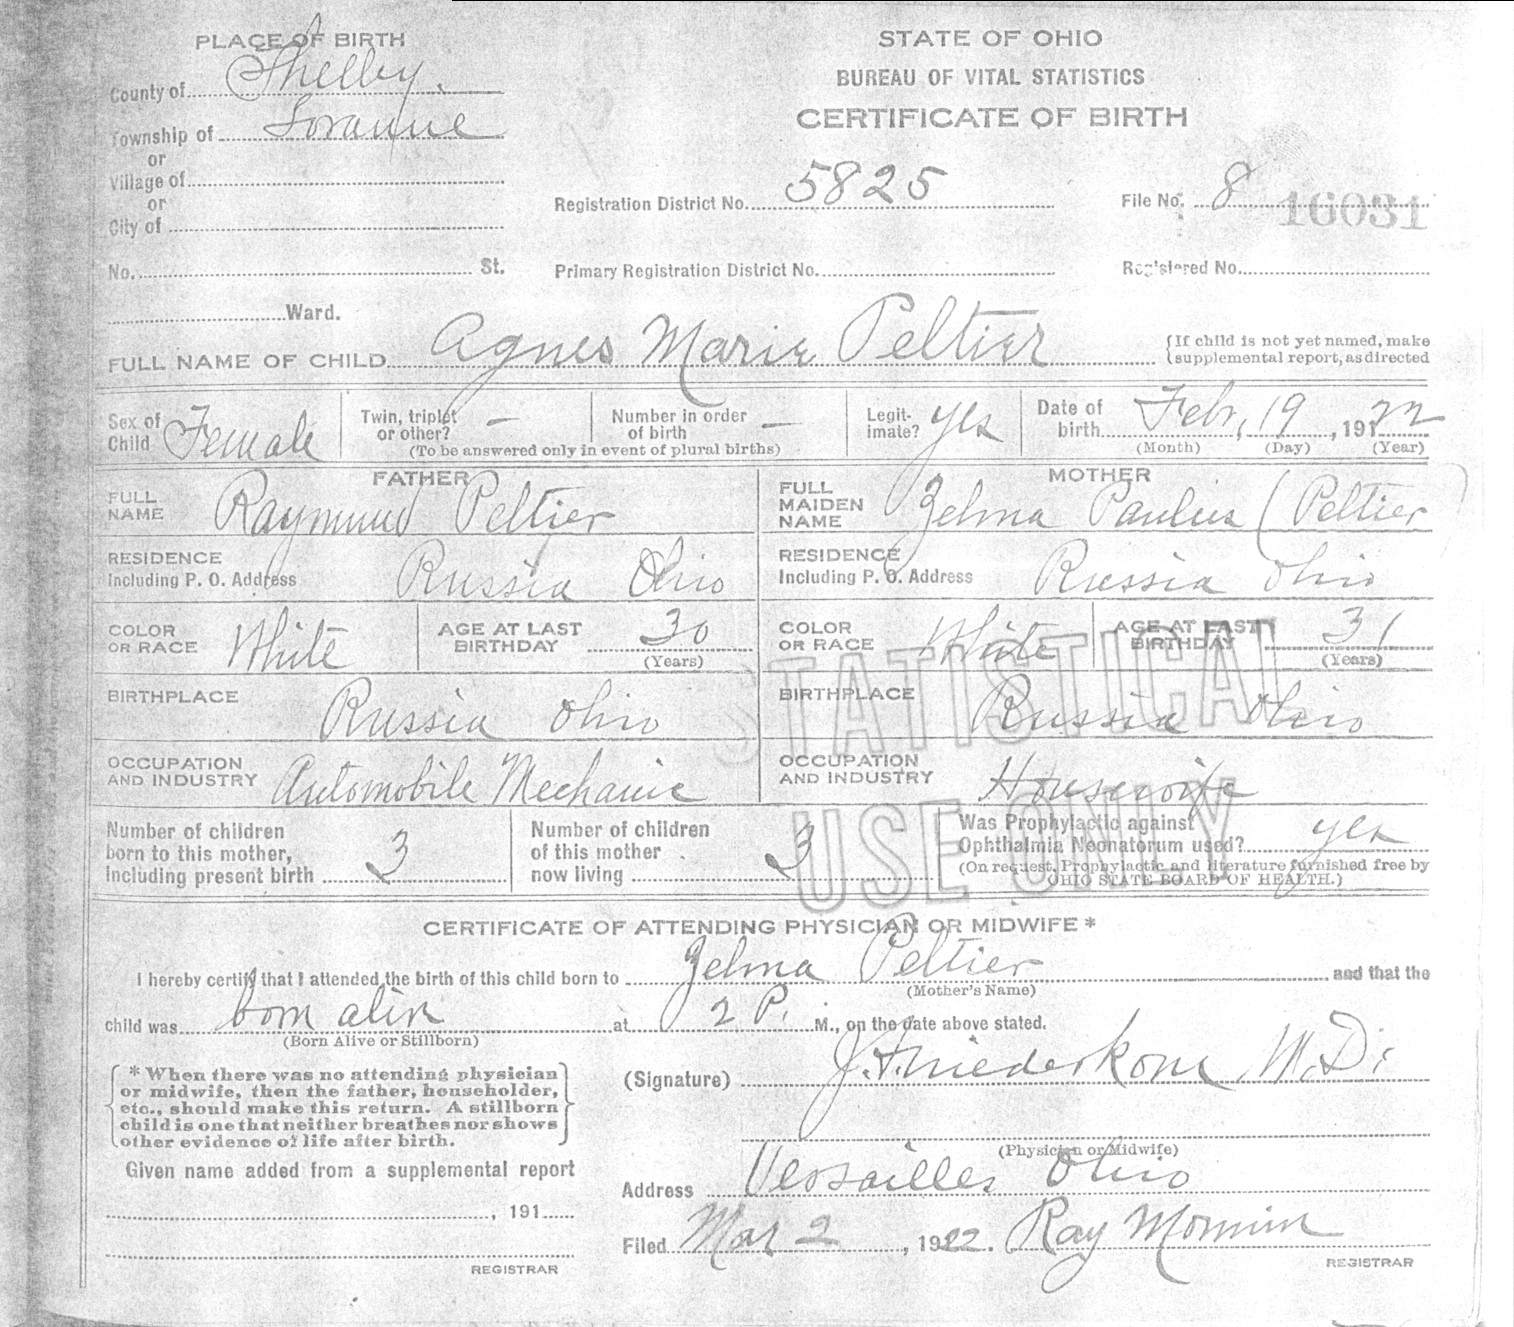 PLACE OF BIRTH
County of Shelby.
Township of Loramie
or
Village of
or
City of
No. St.
Ward.
STATE OF OHIO
BUREAU OF VITAL STATISTICS
CERTIFICATE OF BIRTH
Registration District No. 5825
File No. 8 16031
Primary Registration District No.
Registered No.
FULL NAME OF CHILD Agnes Marie Peltier
{If child is not yet named, make
supplemental report, as directed
Sex of Child Female
Twin, triplet or other? -
Number in order of birth -
(To be answered only in event of plural births)
Legitimate? yes
Date of birth Febr, 19, 1922
(Month) (Day) (Year)
FATHER
FULL NAME Raymund Peltier
MOTHER
FULL MAIDEN NAME Zelma Paulus (Peltier)
RESIDENCE
Including P. O. Address Russia Ohio
RESIDENCE
Including P. O. Address Russia Ohio
COLOR OR RACE White
AGE AT LAST BIRTHDAY 30
(Years)
COLOR OR RACE White
AGE AT LAST BIRTHDAY 31
(Years)
BIRTHPLACE Russia Ohio
BIRTHPLACE Russia Ohio
OCCUPATION AND INDUSTRY Automobile Mechanic
OCCUPATION AND INDUSTRY Housewife
STATISTICAL
USE ONLY
Number of children
born to this mother,
including present birth 3
Number of children
of this mother
now living 3
Was Prophylactic against
Ophthalmia Neonatorum used? yes
(On request, Prophylactic and literature furnished free by
OHIO STATE BOARD OF HEALTH.)
CERTIFICATE OF ATTENDING PHYSICIAN OR MIDWIFE *
I hereby certify that I attended the birth of this child born to Zelma Peltier and that the
(Mother's Name)
child was born alive at 2 P. M., on the date above stated.
(Born Alive or Stillborn)
* When there was no attending physician
or midwife, then the father, householder,
etc., should make this return. A stillborn
child is one that neither breathes nor shows
other evidence of life after birth.
(Signature) M.D.
(Physician or Midwife)
Given name added from a supplemental report
, 191
REGISTRAR
Address Versailles Ohio
Filed Mar 2, 1922. Ray
REGISTRAR